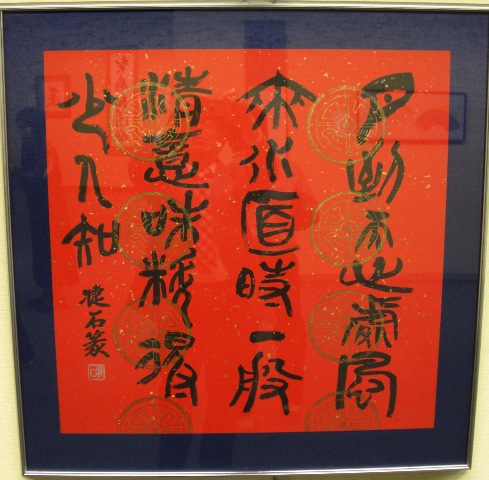 月到天心處風
來水面時一般
清意味料得
少人知
石篆